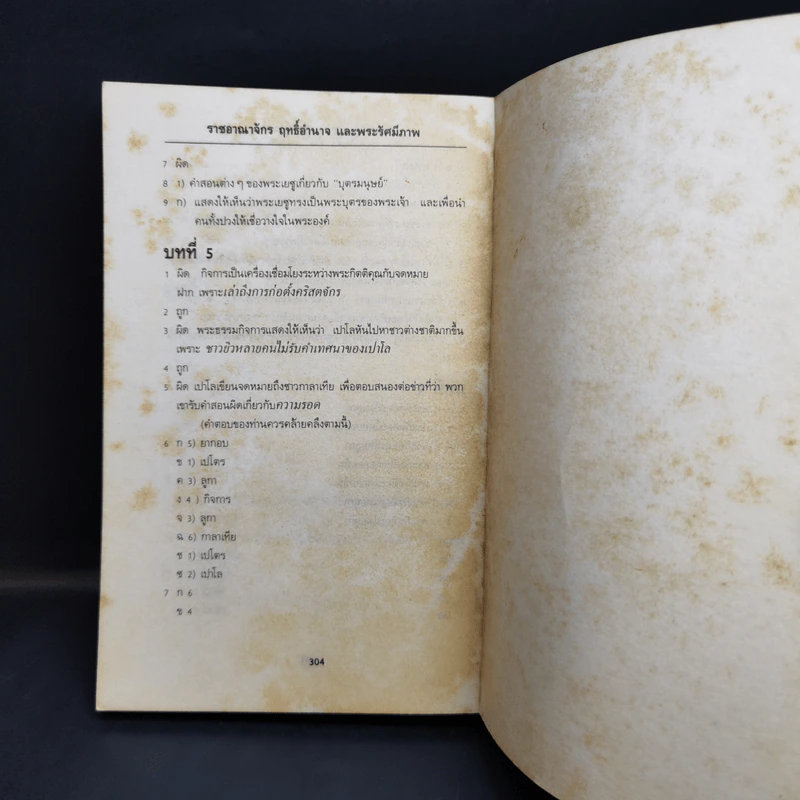 ราชอาณาจักร ฤทธิ์อำนาจ และพระรัศมีภาพ
7 ผิด
8 1) คำสอนต่าง ๆ ของพระเยซูเกี่ยวกับ "บุตรมนุษย์"
9 ก) แสดงให้เห็นว่าพระเยซูทรงเป็นพระบุตรของพระเจ้า และเพื่อนำ
คนทั้งปวงให้เชื่อวางใจในพระองค์
บทที่ 5
1 ผิด กิจการเป็นเครื่องเชื่อมโยงระหว่างพระกิตติคุณกับจดหมาย
ฝาก เพราะเล่าถึงการก่อตั้งคริสตจักร
2 ถูก
3 ผิด พระธรรมกิจการแสดงให้เห็นว่า เปาโลหันไปหาชาวต่างชาติมากขึ้น
เพราะ ชาวยิวหลายคนไม่รับคำเทศนาของเปาโล
4 ถูก
5 ผิด เปาโลเขียนจดหมายถึงชาวกาลาเทีย เพื่อตอบสนองต่อข่าวที่ว่า พวก
เขารับคำสอนผิดเกี่ยวกับความรอด
(คำตอบของท่านควรคล้ายคลึงตามนี้)
6 ก 5) ยากอบ
ข 1) เปโตร
ค 3) ลูกา
ง 4 ) กิจการ
จ 3) ลูกา
ฉ 6) กาลาเทีย
ช 1) เปโตร
ซ 2) เปาโล
7 ก 6
ข 4
304